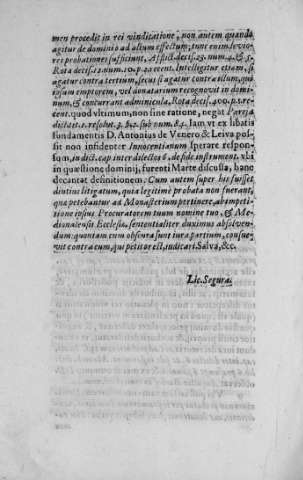 men procedit in rei vinditicatione, non autem quando
agitur de dominio ad alium effectum; tunc enim leviores
probationes sufficiunt, Afflict. decis. 23. num. 4. & 5.
Rota decis. 12. num. 10. p. 22. recent. Intelligitur etiam, si
agatur contra tertium, secus si agatur contra illum, qui
ipsum emptorem, vel donatarium recognovit in domi-
num, & concurrant adminicula, Rota decis. 400. p. 5. re-
cent. quod vltimum, non sine ratione, negat
dictat. t. resolut. num. 8. Iam vt ex libatis
fundamentis D. Antonius de Venero & Leiva pos-
sit non infidenter Innocentianum sperare respon-
sum, in dict. cap. inter dilectos 6. de fide instrument. vbi
in quæstione dominij, furenti Marte discussa, hanc
decantat definitionem. Cum autem super his fuisset
diutius litigatum, quia legitimè probata non fuerant,
quæ petebantur ad Monasterium pertinere, ab impeti-
tione ipsius Procuratorem tuum nomine tuo, & Me-
diolanensis Ecclesiæ, sententialiter duximus absolven-
dum: quoniam cum obscura sunt iura partium, consue-
vit contra eum, qui petitor est, iudicari. Salva, &c.
Lic. Segura.